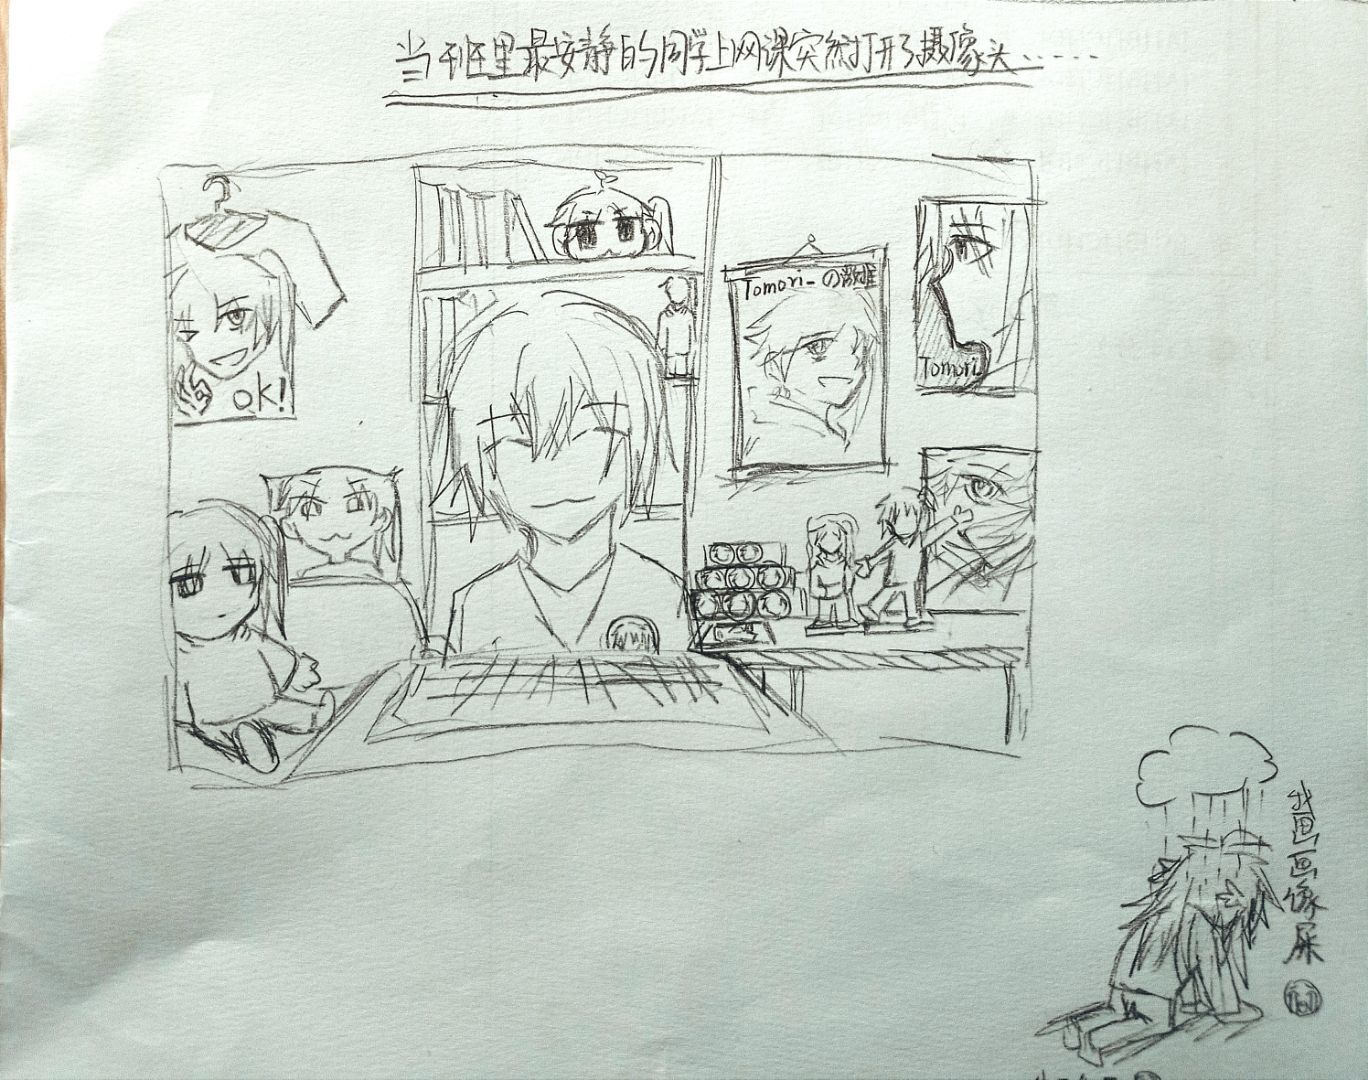 当班里最安静的同学上网课突然打开了摄像头……
OK!
Tomori_の
Tomori_
我画画像屎